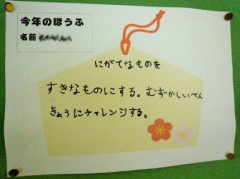 今年のほうふ
名前
にがてなものを
すきなものにする。むずかしいべん
きょうにチャレンジする。